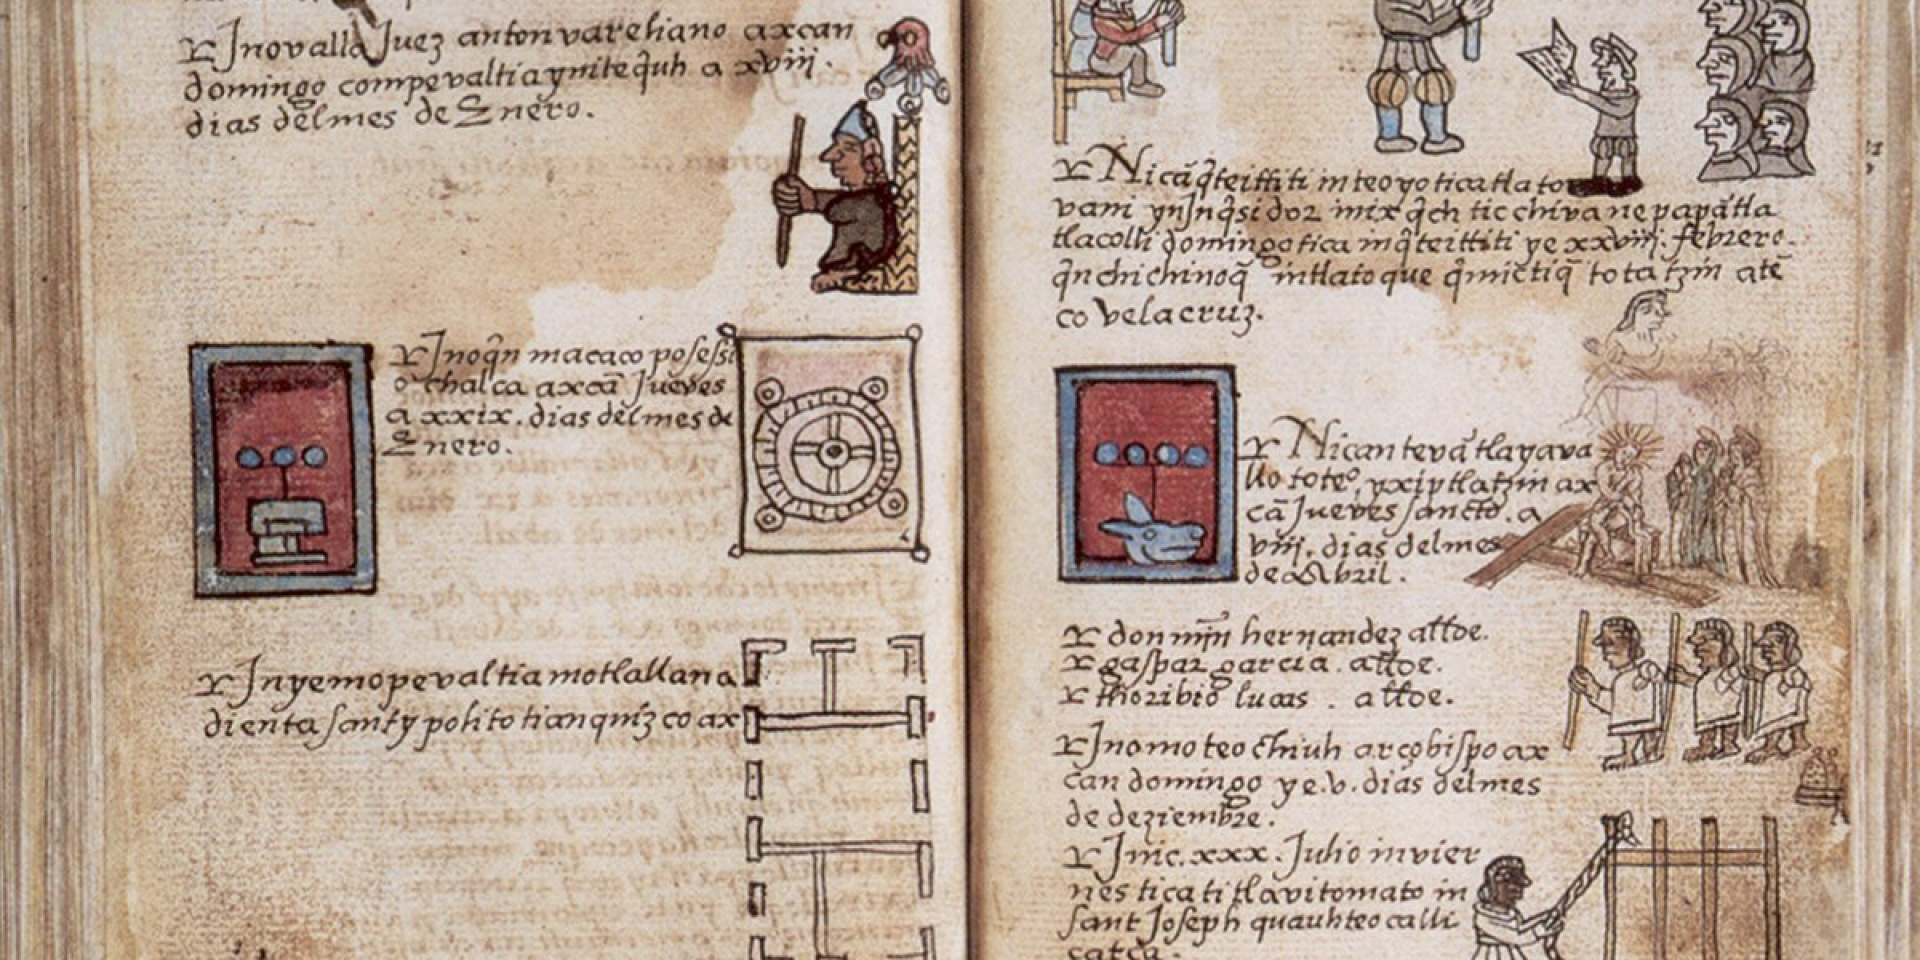 Inovalla Juez anton vareliano axcan
domingo compevaltia ynitequh a xviij.
dias delmes de Enero.
Inoqn macaco posessi
o chalca axcā Jueves
a xxix. dias dēlmes de
Enero.
Inyemopevaltia motlallana
dienta santypolito tianquizco ax
Nicā q̄teittiti in teoyotica tlato
vani ynInq̄sidoz mixq̄ch ticchiva nepapātla
tlacolli domingotica inq̄teittiti ye xxviij. febrero.
q̄nchichinoq̄ intlatoque q̄mictiq̄ totatzin atē
co velacruz.
Nican tevā tlayava
llo totecº. yxiptlatzin ax
cā Jueves sancto. a
viij. dias delmes
de Abril.
don mīn hernandez allde.
gaspar garcia. allde.
thoribio lucas . allde.
Inomoteochiuh arçobispo ax
can domingo ye.v. dias delmes
de deziembre.
Inic.xxx. Julio invier
nes tica titlavitomato in
sant Joseph quauhteocalli
catca.